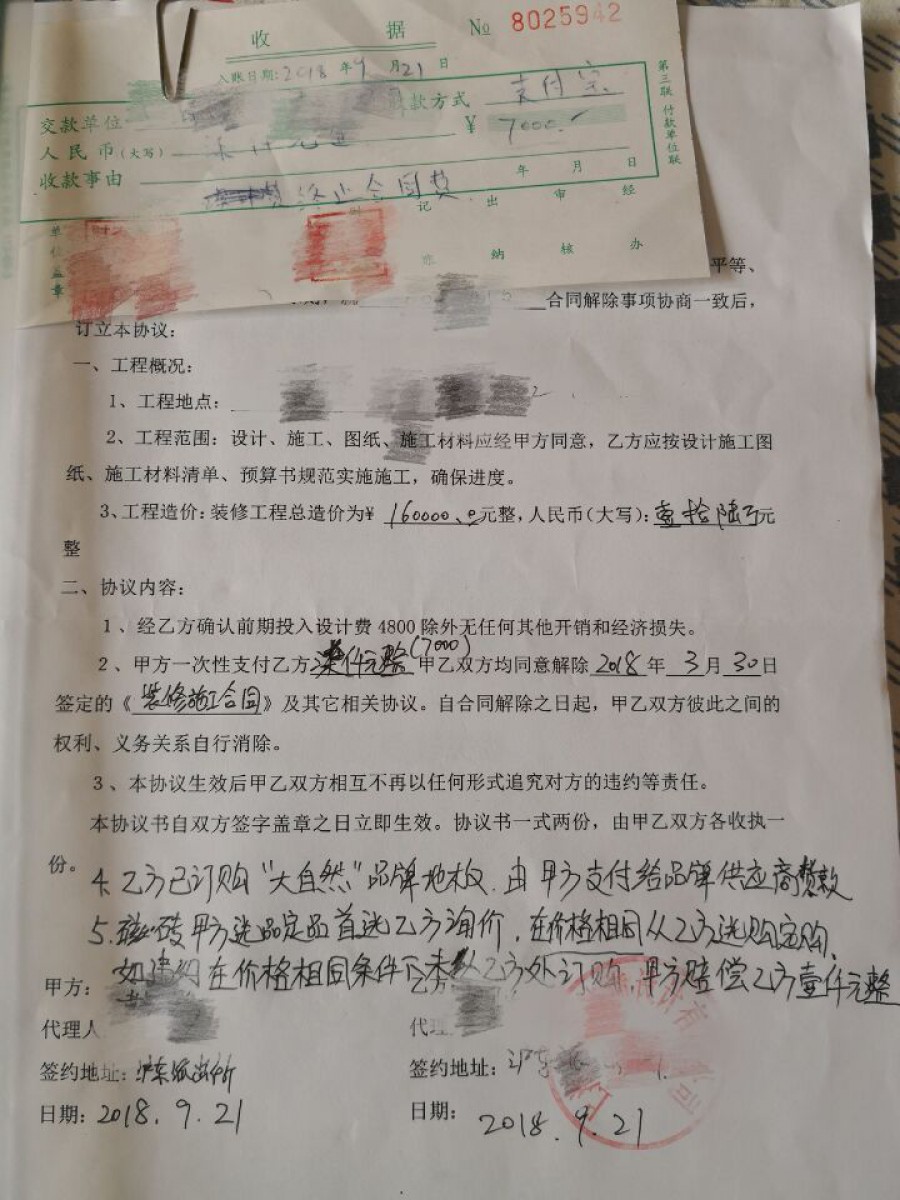 收 据 № 8025942
入账日期:2018年9月21日
交款单位 收款方式 支付宝
人民币(大写) ¥ 7000.-
收款事由 终止合同费 年 月 日
第三联 付款单位联
单位盖章 记账 出纳 审核 经办
平等、
合同解除事项协商一致后,
订立本协议:
一、工程概况:
1、工程地点:
2、工程范围:设计、施工、图纸、施工材料应经甲方同意,乙方应按设计施工图
纸、施工材料清单、预算书规范实施施工,确保进度。
3、工程造价:装修工程总造价为¥ 160000.0元整,人民币(大写):壹拾陆万元
整
二、协议内容:
1、经乙方确认前期投入设计费 4800 除外无任何其他开销和经济损失。
2、甲方一次性支付乙方柒仟元整(7000)甲乙双方均同意解除 2018 年 3 月 30 日
签定的《装修施工合同》及其它相关协议。自合同解除之日起,甲乙双方彼此之间的
权利、义务关系自行消除。
3、本协议生效后甲乙双方相互不再以任何形式追究对方的违约等责任。
本协议书自双方签字盖章之日立即生效。协议书一式两份,由甲乙双方各收执一
份。
4.乙方已订购“大自然”品牌地板.由甲方支付给品牌供应商货款
5.磁砖甲方选品定品首选乙方询价,在价格相同从乙方选购定购,
如违约在价格相同条件下未从乙方处订购,甲方赔偿乙方壹仟元整
甲方: 乙方:
代理人 代
签约地址:沪东派出所 签约地址:沪东
日期:2018.9.21 日期:2018.9.21